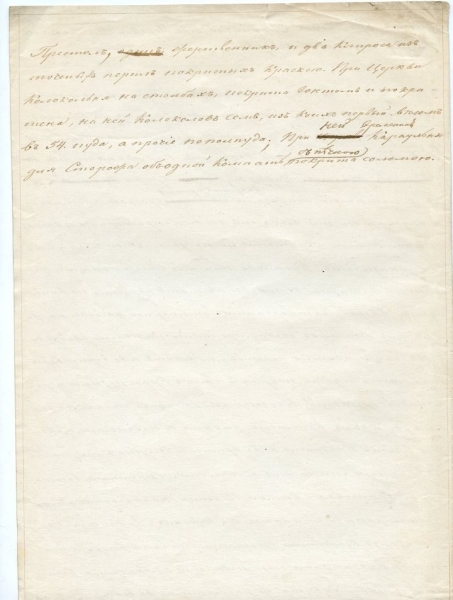 Престолъ, одинъ жертвенникъ, и два клироса из
точеныхъ перилъ покритыхъ краскою. При Церкви
колокольня на столбахъ, покрита гонтомъ и покра
шена, на ней колоколовъ семь, изъ коихъ первый весомъ
въ 34. пуда, а прочіе по полпуда; При ней караулка
для Сторожа объ одной комнатѣ, покрита соломою.